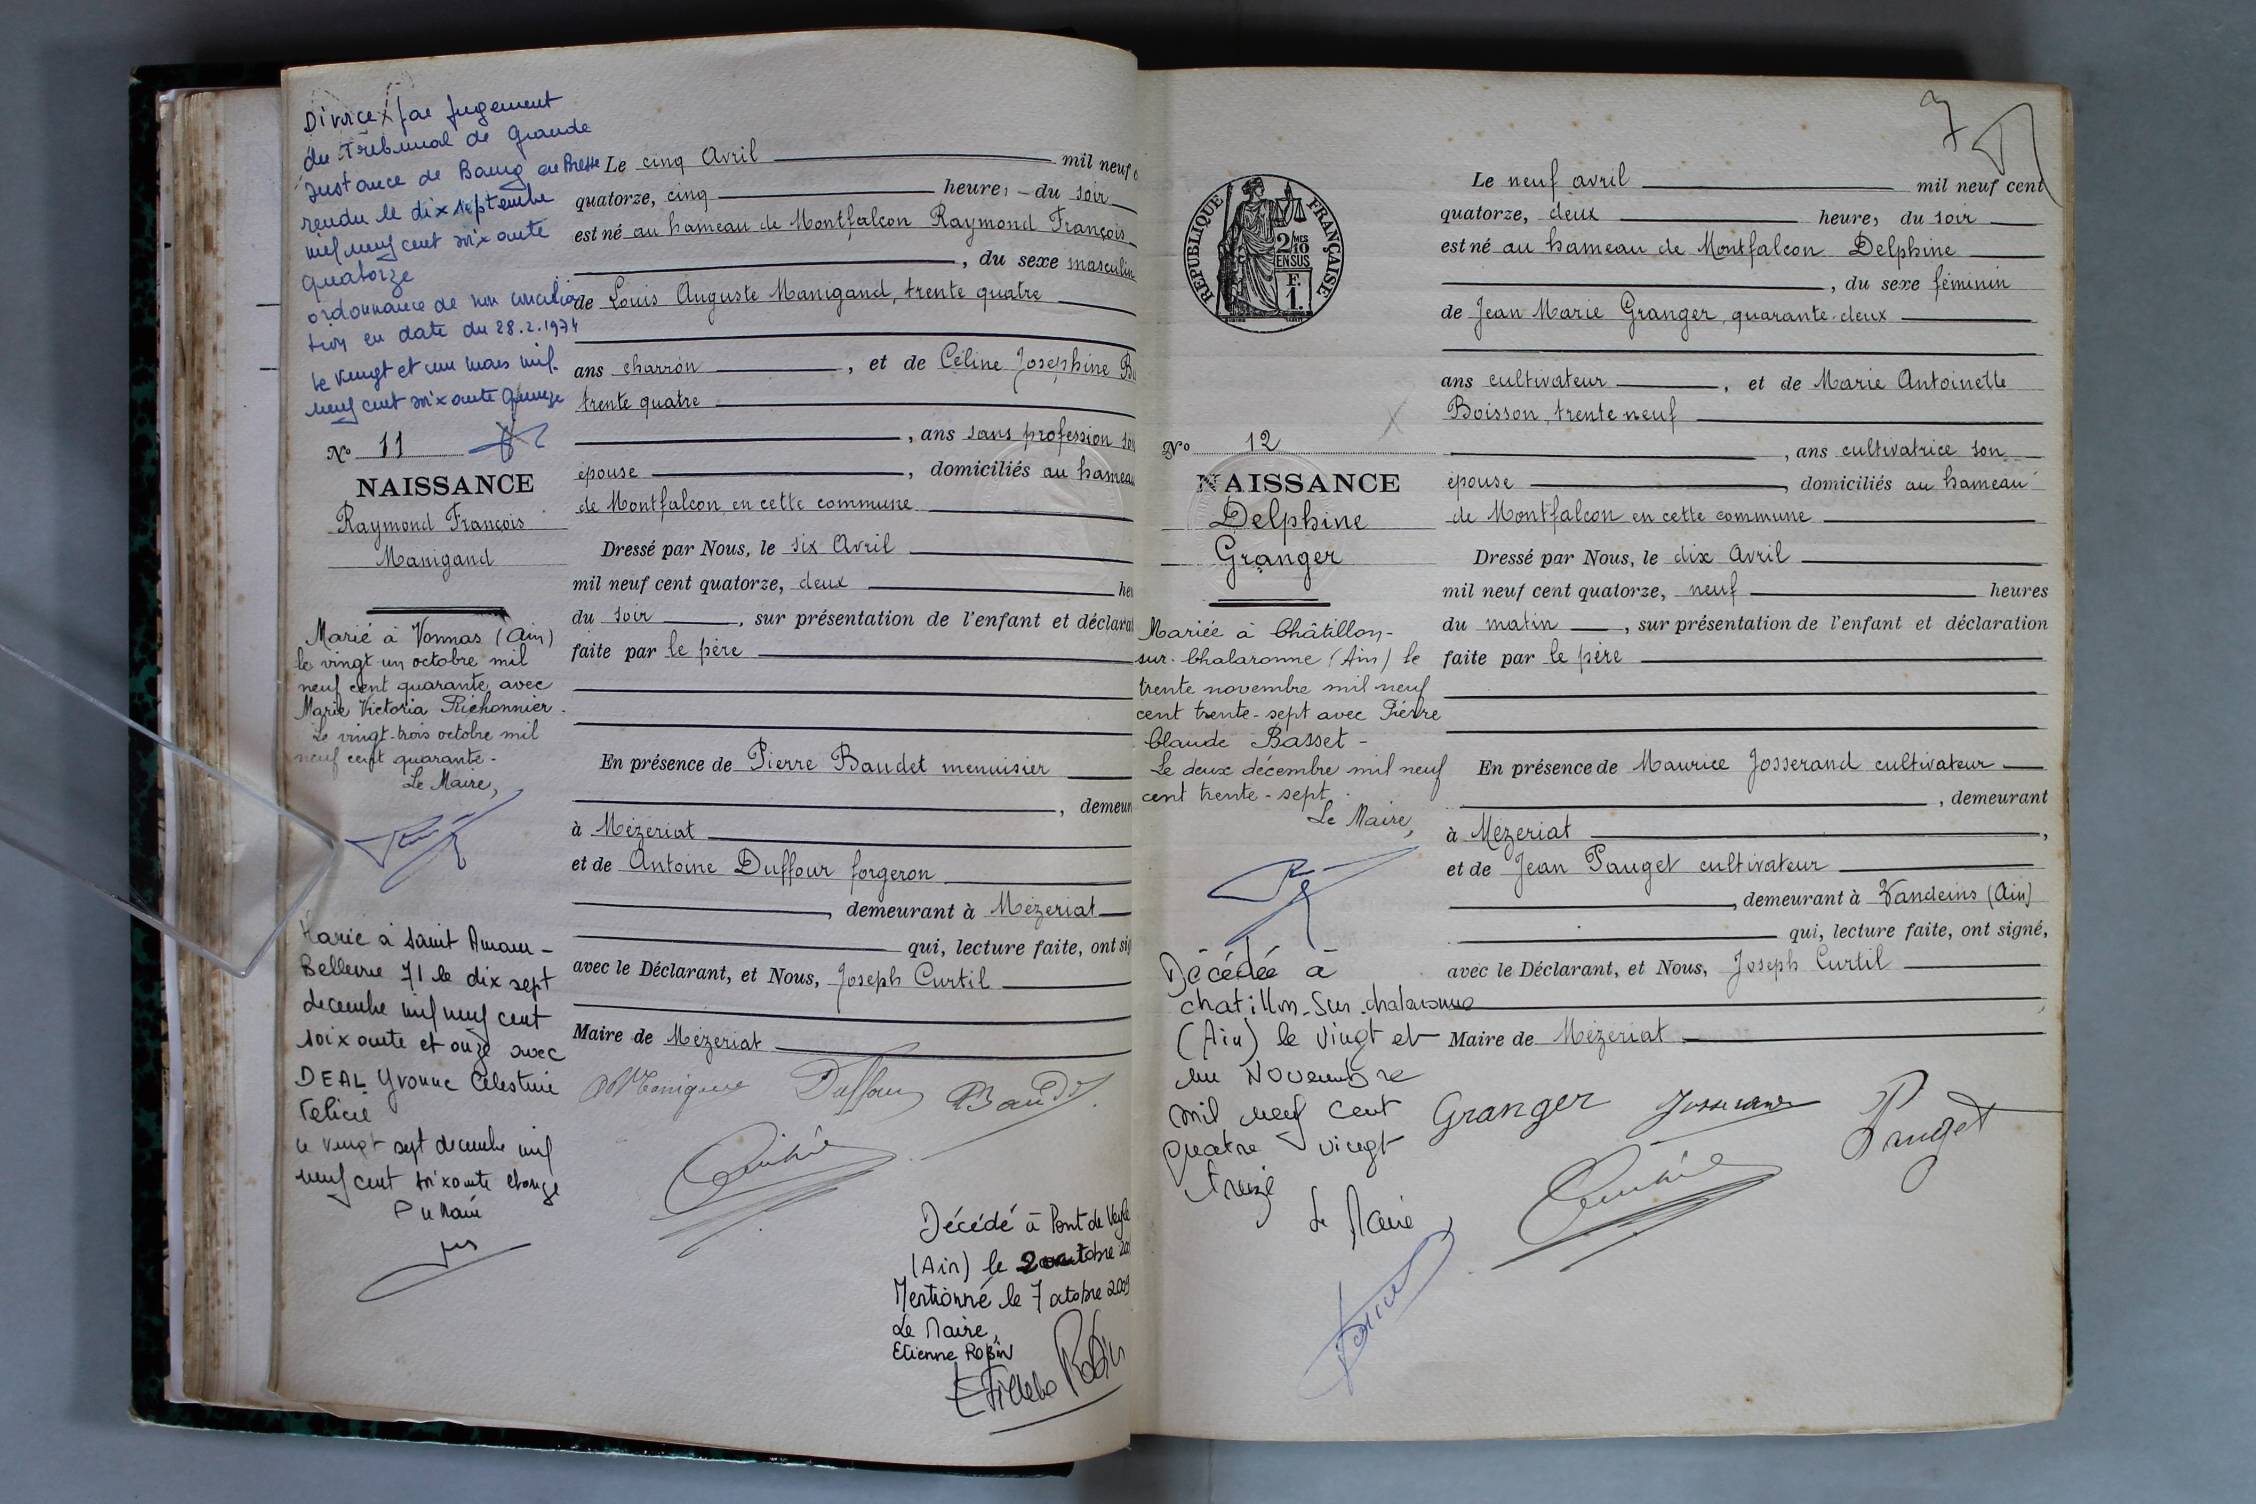 Divorce par jugement
du Tribunal de Grande
Instance de Bourg en Bresse
rendu le dix septembre
mil neuf cent soixante
quatorze
ordonnance de non concilia
tion en date du 28.2.1974
le vingt et un mars mil
neuf cent soixante quinze
No 11
NAISSANCE
Raymond François
Manigand
Marié à Vonnas (Ain)
le vingt un octobre mil
neuf cent quarante avec
Marie Victoria Richonnier.
Le vingt-trois octobre mil
neuf cent quarante -
Le Maire,
Marié à Saint Amour-
Bellevue 71 le dix sept
decembre mil neuf cent
soixante et onze avec
DEAL Yvonne Célestine
Felicie
Le vingt sept decembre mil
neuf cent soixante et onze
Le cinq Avril mil neuf c
quatorze, cinq heures du soir
est né au hameau de Montfalcon Raymond François
, du sexe masculin
de Louis Auguste Manigand, trente quatre
ans charron, et de Céline Josephine Bu
trente quatre
, ans sans profession son
épouse, domiciliés au hameau
de Montfalcon en cette commune
Dressé par Nous, le six Avril
mil neuf cent quatorze, deux heu
du soir, sur présentation de l'enfant et déclarat
faite par le père
En présence de Pierre Baudet menuisier
, demeur
à Mézériat
et de Antoine Duffour forgeron
, demeurant à Mézériat
qui, lecture faite, ont sig
avec le Déclarant, et Nous, Joseph Curtil
Maire de Mézériat
Duffour
Décédé à Pont de Veyle
(Ain) le 2 octobre 20
Mentionné le 7 octobre 2009
Le Maire,
Etienne ROBIN
7
RÉPUBLIQUE FRANÇAISE
2/10 MES
EN SUS
F.
1.
No 12
NAISSANCE
Delphine
Granger
Mariée à Châtillon-
sur-Chalaronne (Ain) le
trente novembre mil neuf
cent trente-sept avec Pierre
Claude Basset -
Le deux décembre mil neuf
cent trente-sept.
Le Maire,
Décédée à
chatillon-Sur-chalaronne
(Ain) le vingt et
un Novembre
mil neuf cent
quatre vingt
treize
Le Maire
Le neuf avril mil neuf cent
quatorze, deux heures du soir
est né au hameau de Montfalcon Delphine
, du sexe féminin
de Jean Marie Granger, quarante-deux
ans cultivateur, et de Marie Antoinette
Boisson, trente neuf
, ans cultivatrice son
épouse, domiciliés au hameau
de Montfalcon en cette commune
Dressé par Nous, le dix Avril
mil neuf cent quatorze, neuf heures
du matin, sur présentation de l'enfant et déclaration
faite par le père
En présence de Maurice Josserand cultivateur
, demeurant
à Mézériat,
et de Jean Pauget cultivateur
, demeurant à Vandeins (Ain)
qui, lecture faite, ont signé,
avec le Déclarant, et Nous, Joseph Curtil
Maire de Mézériat
Granger Josserand Pauget